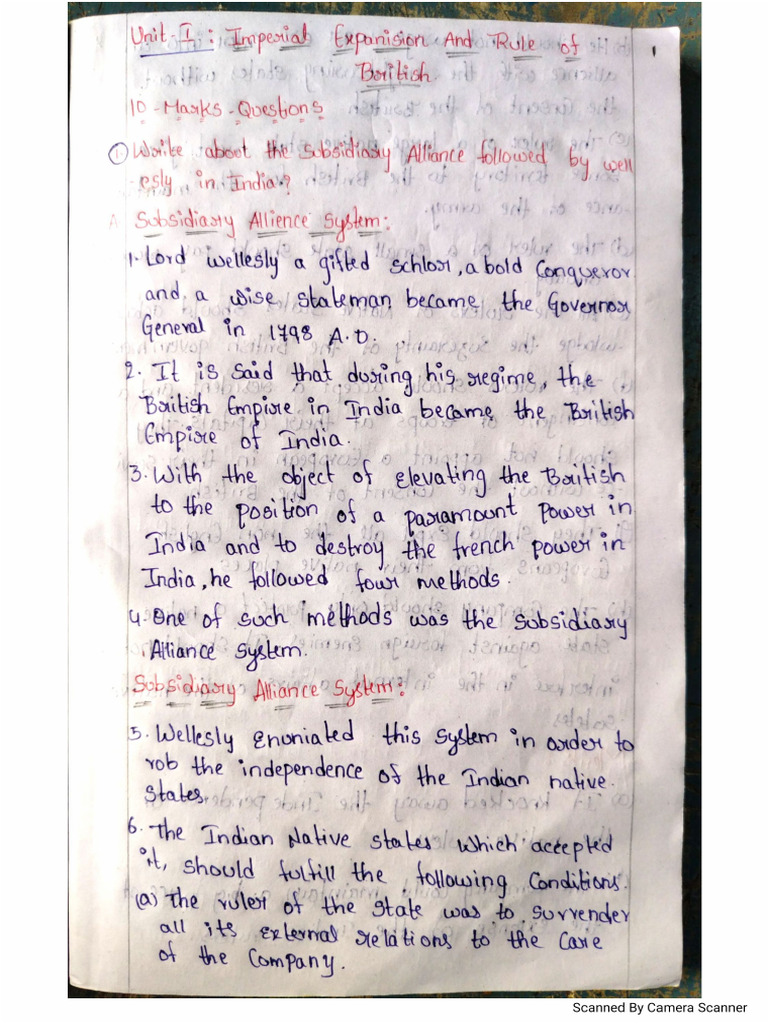 Unit I : Imperial Expanision And Rule of
1
British
10-Marks-Questions
1. Write about the Subsidiary Alliance followed by well
esly in India?
A. Subsidiary Allience System:
1. Lord wellesly a gifted schlor, a bold Conqueror
and, a wise stateman became the Governor
General in 1798 A.D.
2. It is said that during his regime, the
British Empire in India became the British
Empire of India.
3. With the object of elevating the British
to the position of a paramount power in
India and to destroy the french power in
India, he followed four methods.
4. One of such methods was the subsidiary
Alliance system.
Subsidiary Alliance System:
5. Wellesly enuniated this system in order to
rob the independence of the Indian native
States.
6. The Indian Native states which accepted
it, should fulfill the following Conditions.
(a) The ruler of the state was to surrender
all its external relations to the Care
of the Company.
Scanned By Camera Scanner